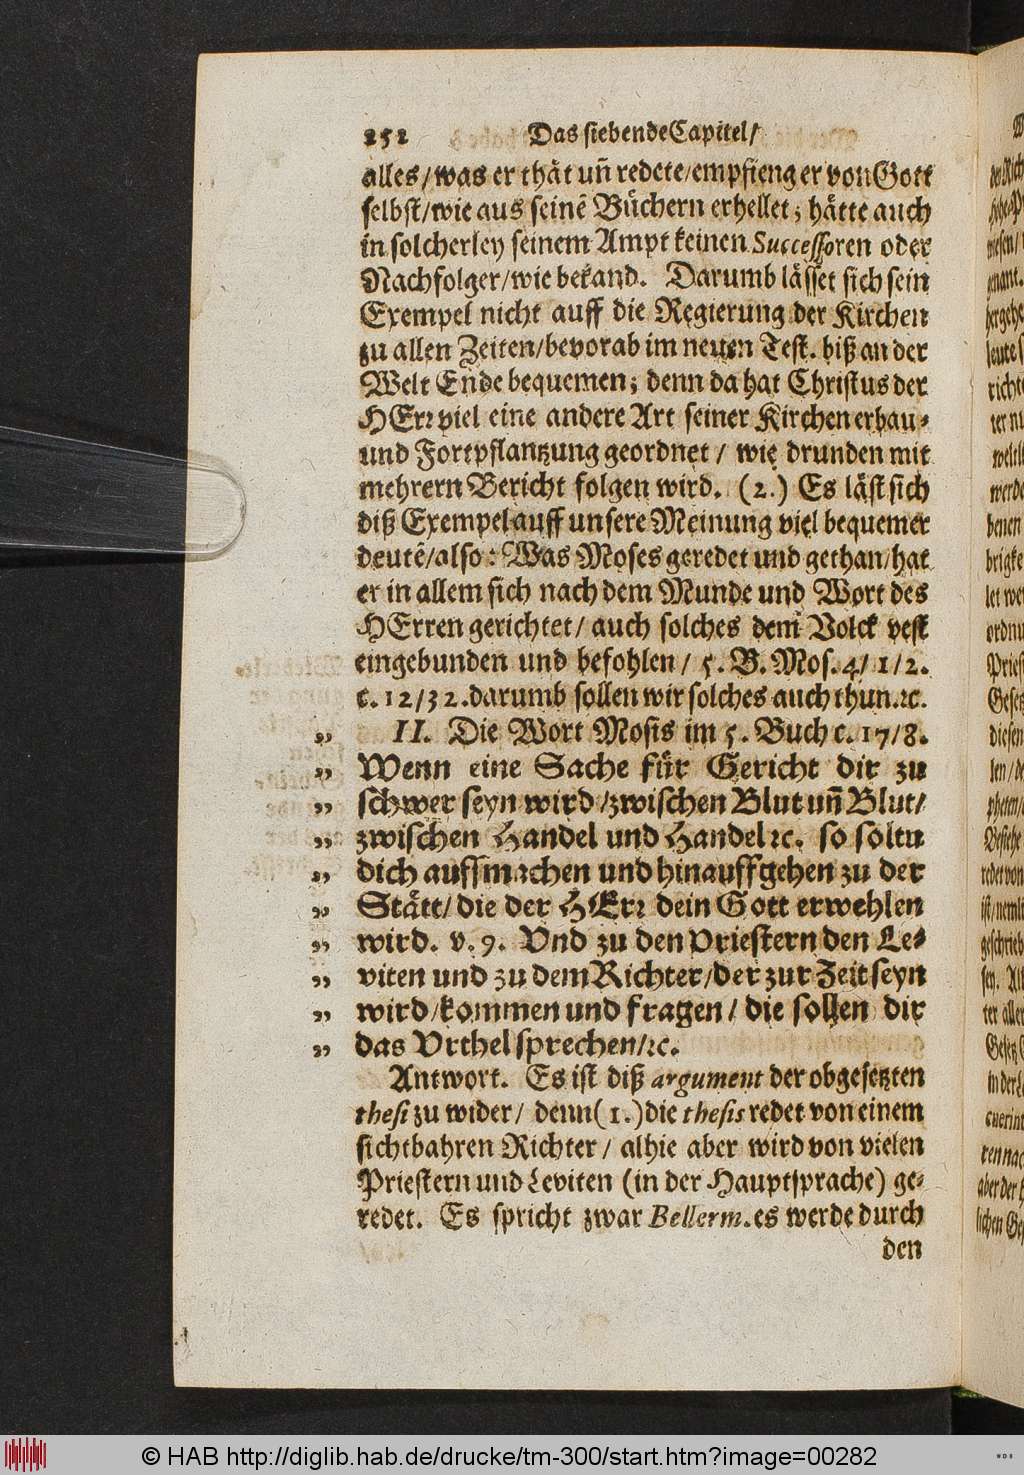 252 Das siebende Capitel/
alles/ was er thät uñ redete/ empfieng er von Gott
selbst/ wie aus seinē Büchern erhellet; hätte auch
in solcherley seinem Ampt keinen Successoren oder
Nachfolger/ wie bekand. Darumb lässet sich sein
Exempel nicht auff die Regierung der Kirchen
zu allen Zeiten/ bevorab im neuen Test. biß an der
Welt Ende bequemen; denn da hat Christus der
HErr viel eine andere Art seiner Kirchen erbau-
und Fortpflantzung geordnet / wie drunden mit
mehrern Bericht folgen wird. (2.) Es läst sich
diß Exempel auff unsere Meinung viel bequemer
deutē/ also: Was Moses geredet und gethan/ hat
er in allem sich nach dem Munde und Wort des
HErren gerichtet/ auch solches dem Volck vest
eingebunden und befohlen/ 5. B. Mos. 4/ 1/ 2.
c. 12/ 32. darumb sollen wir solches auch thun. ꝛc.
„ II. Die Wort Mosis im 5. Buch c. 17/ 8.
„ Wenn eine Sache für Gericht dir zu
„ schwer seyn wird / zwischen Blut uñ Blut/
„ zwischen Handel und Handel ꝛc. so soltu
„ dich auffmachen und hinauffgehen zu der
„ Stätt/ die der HErr dein Gott erwehlen
„ wird. v. 9. Vnd zu den Priestern den Le-
„ viten und zu dem Richter/ der zur Zeit seyn
„ wird/ kommen und fragen/ die sollen dir
„ das Vrthel sprechen/ ꝛc.
Antwort. Es ist diß argument der obgesetzten
thesi zu wider/ denn (1.) die thesis redet von einem
sichtbahren Richter/ alhie aber wird von vielen
Priestern und Leviten (in der Hauptsprache) ge-
redet. Es spricht zwar Bellerm. es werde durch
den
© HAB http://diglib.hab.de/drucke/tm-300/start.htm?image=00282